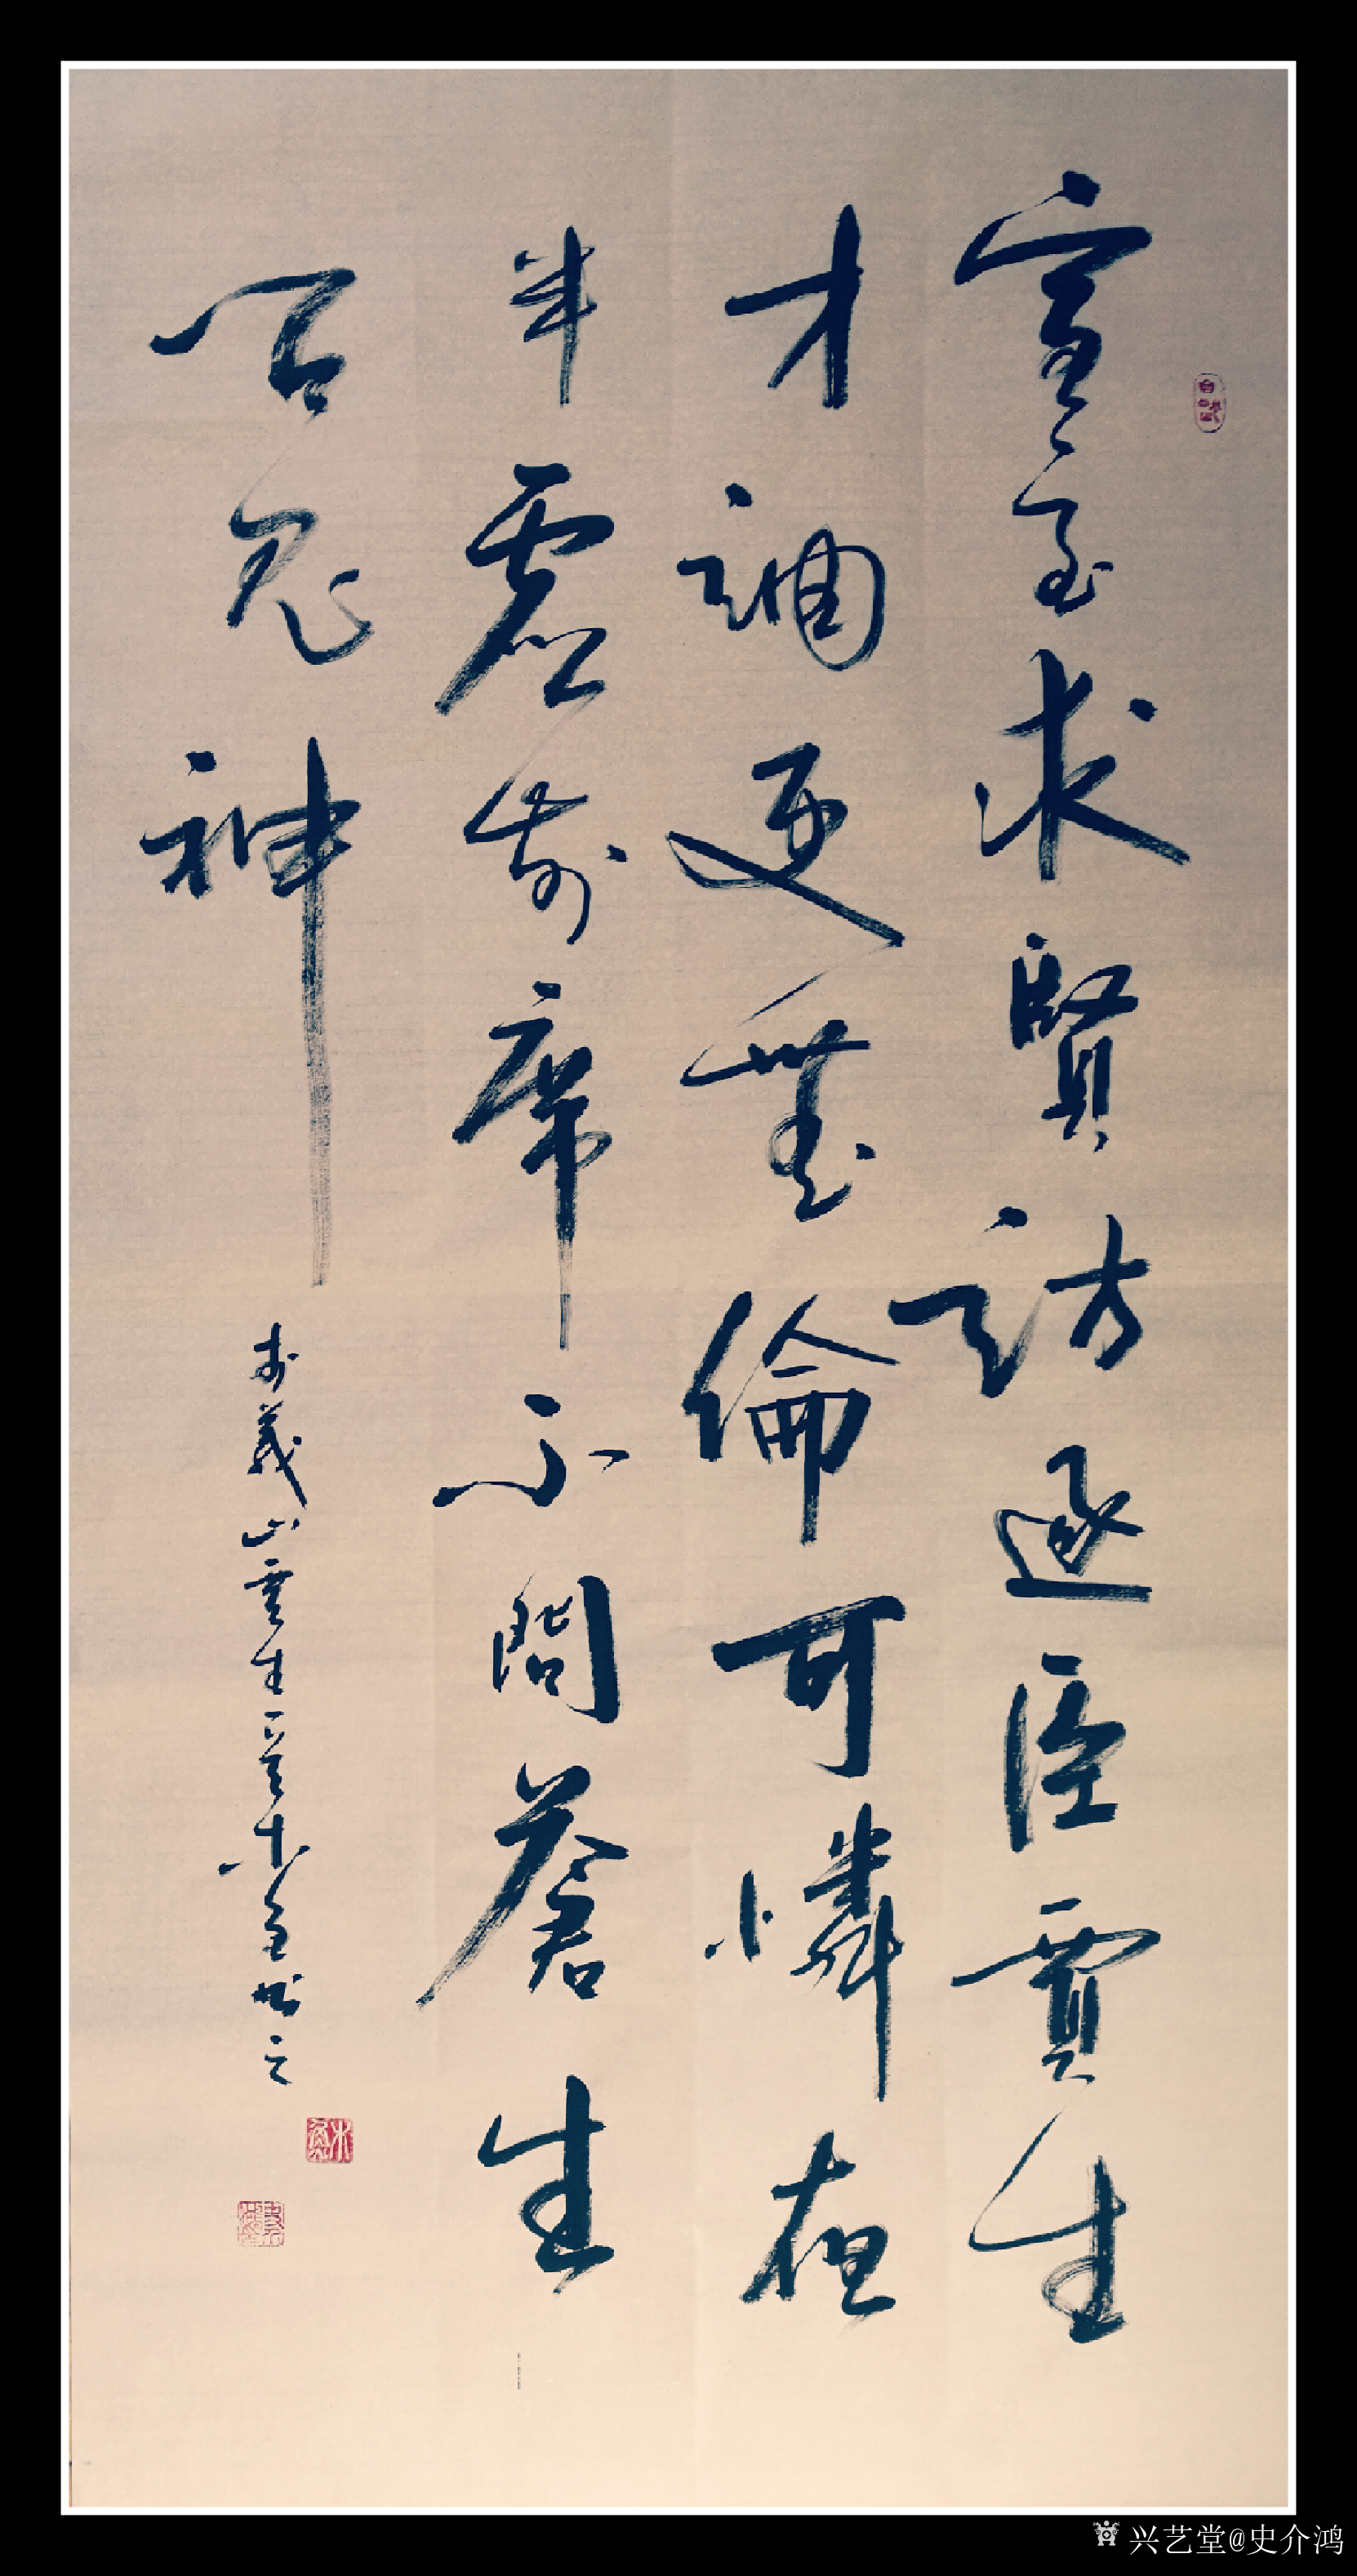 宣室求賢訪逐臣賈生
才調更無倫可憐夜
半虛前席不問蒼生
問鬼神
義山賈生一首
書之
兴艺堂@史介鸿